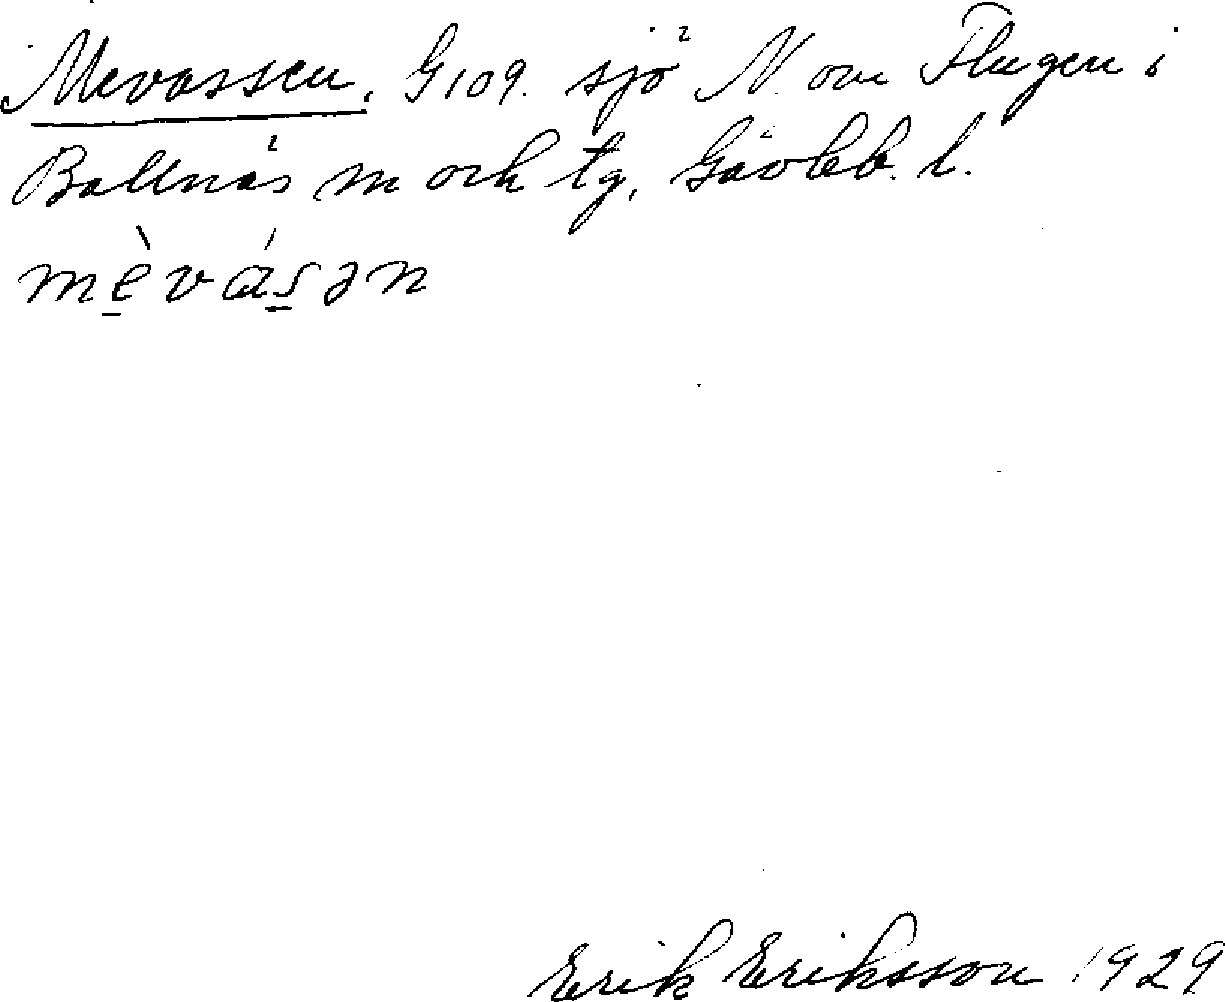 Mevassen. G109. sjö N. om Flugen i
Bollnäs sn och tg, Gävleb. l.
mèvásən
Erik Eriksson 1929